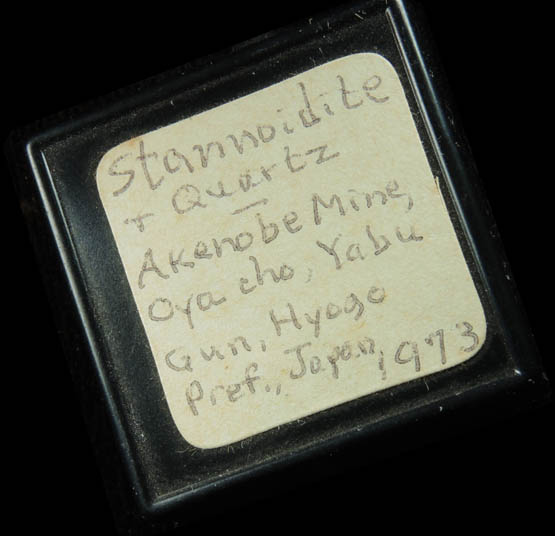 Stannoidite
+ Quartz
Akenobe Mine,
Oya cho, Yabu
Gun, Hyogo
Pref., Japan, 1973